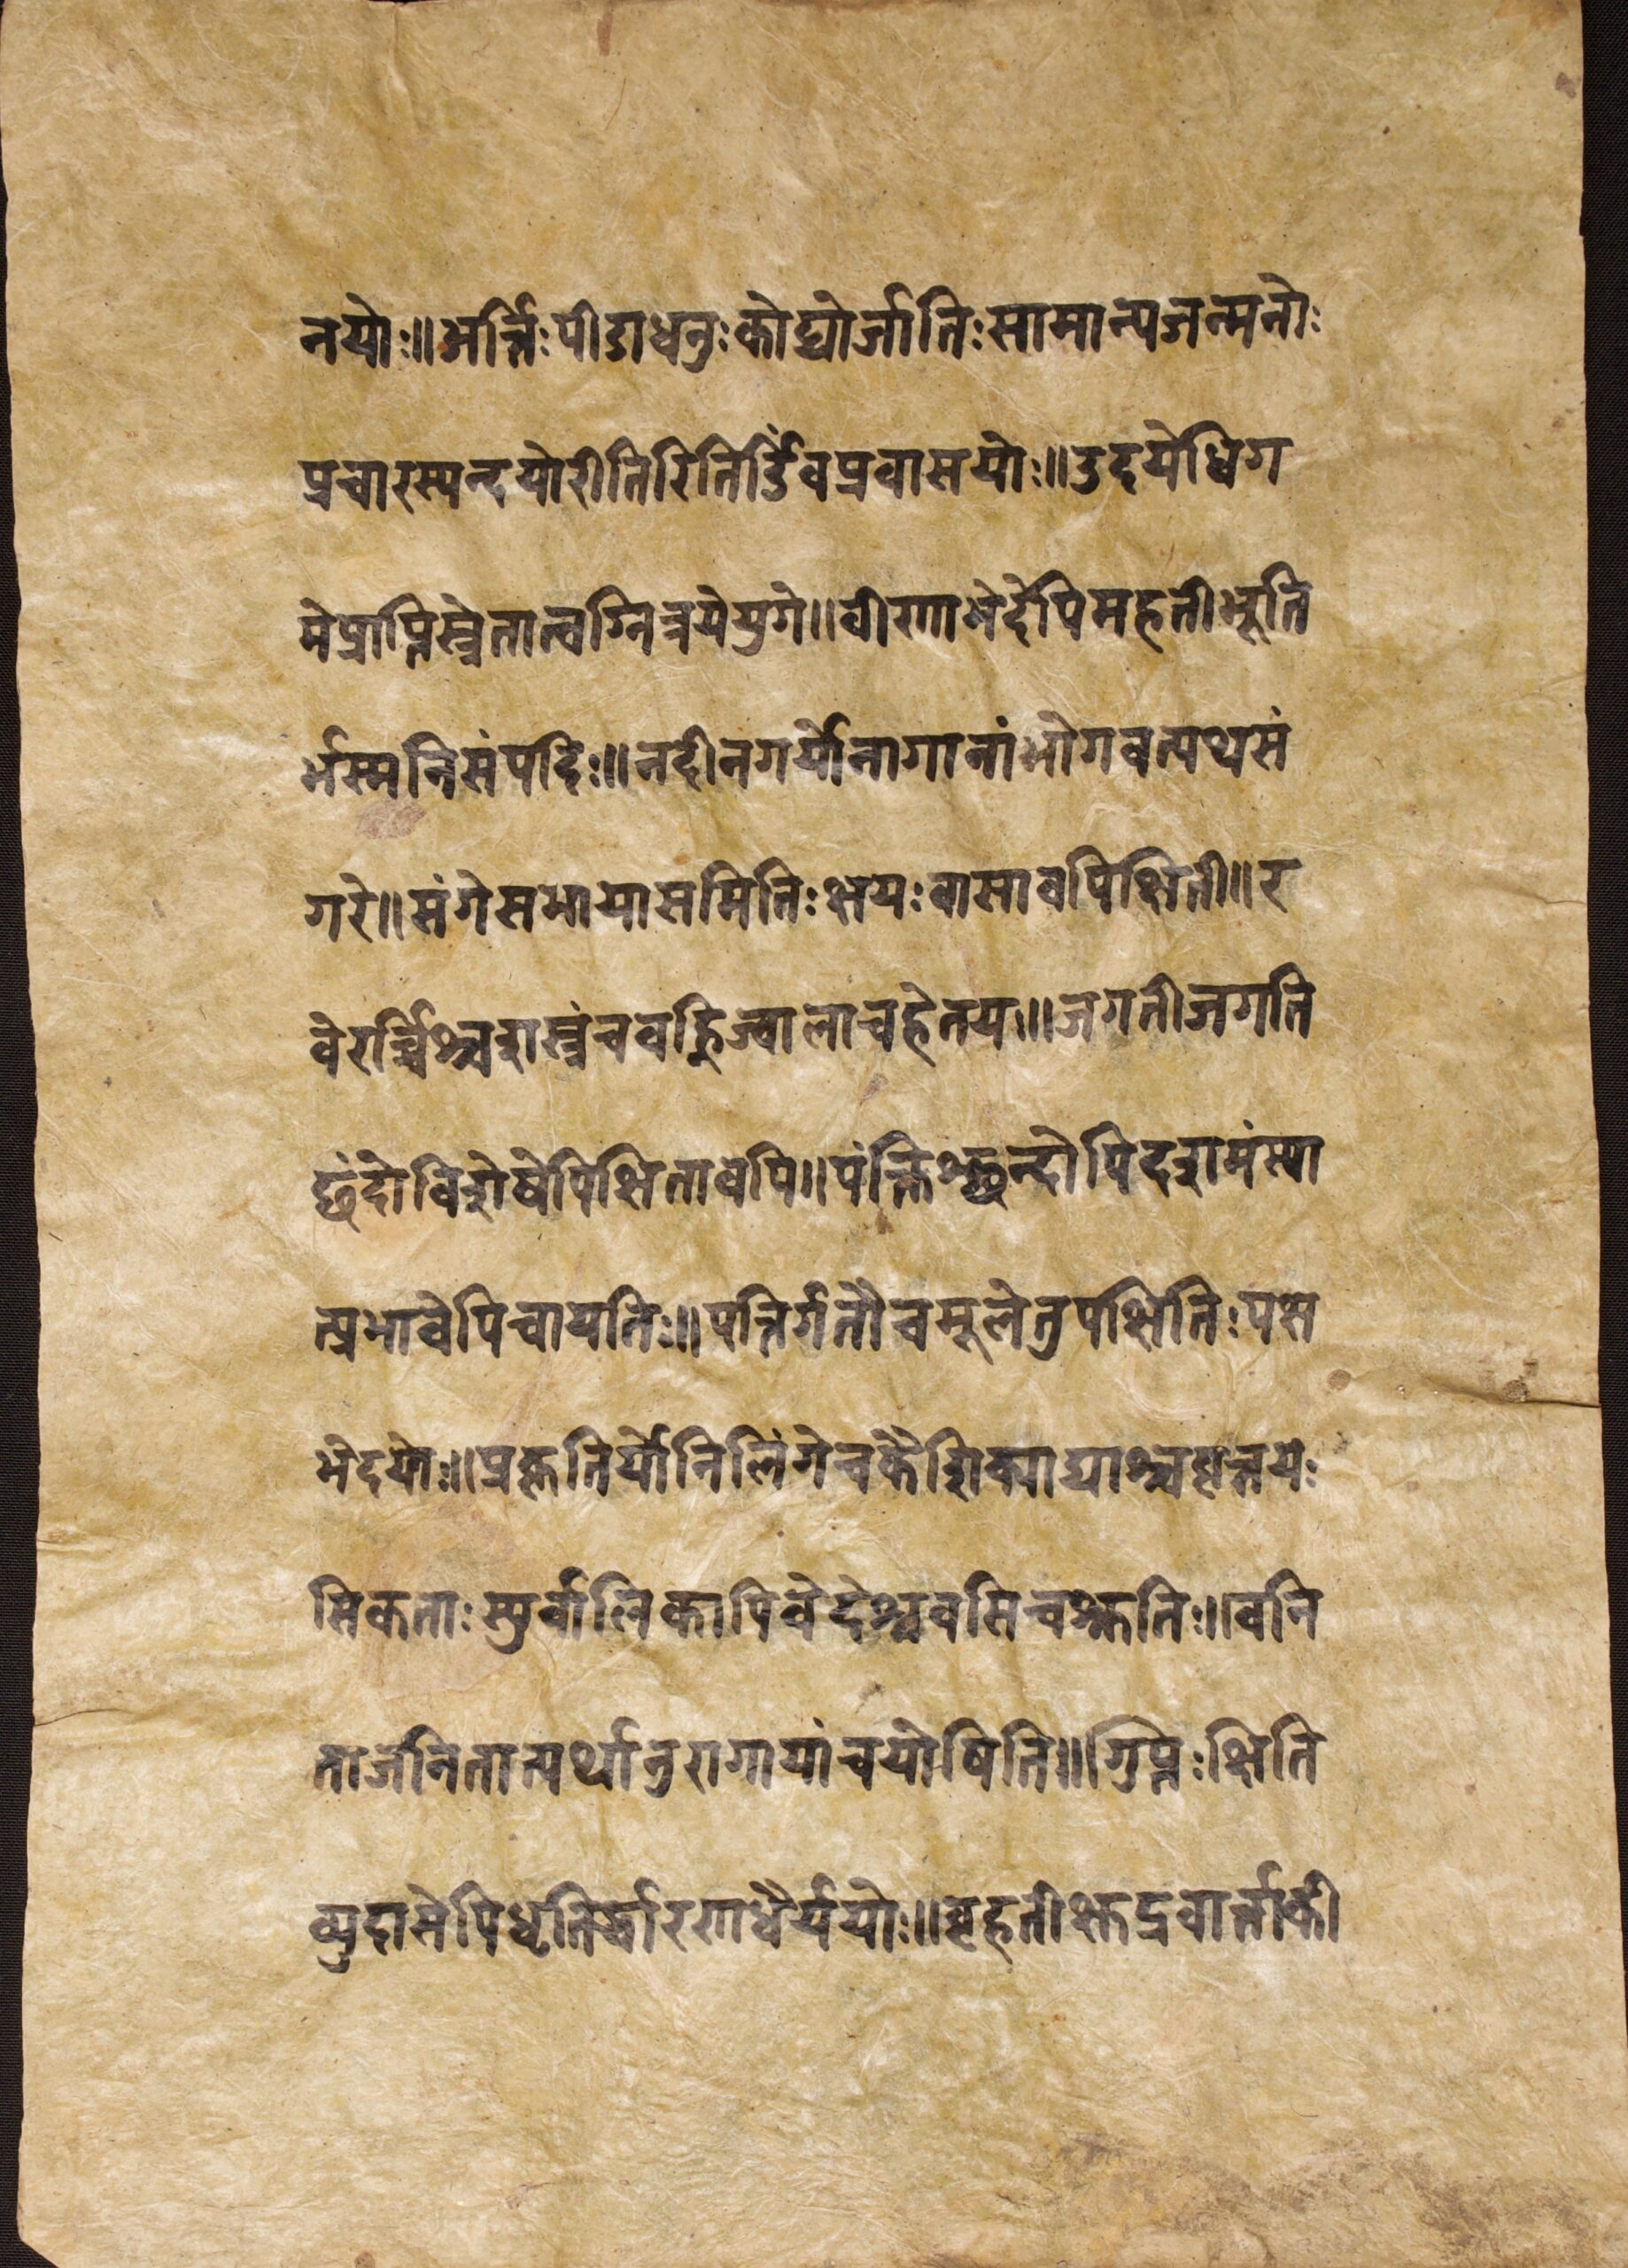 नयोः॥अर्त्तिःपीडाधनुःकोट्योर्जातिःसामान्यजन्मनोः
प्रचारस्यन्दयोरीतिरितिर्डिंवप्रवासयोः॥उदयेधिग
मेप्राप्तिस्त्रेतात्वग्नित्रयेयुगे॥वीणाभेदेपिमहतीभूति
र्भस्मनिसंपदिः॥नदीनगर्योनागानांभोगवत्यथसं
गरे॥संगेसभायासमितिःक्षयःवासावपिक्षिती॥र
वेरर्च्चिश्चशस्त्रंचवह्निज्वालाचहेतयः॥जगतीजगति
छंदोविशेषेपिक्षितावपि॥पंक्तिश्छन्दोपिदशमंस्या
त्प्रभावेपिचायतिः॥पत्तिर्गतौचमूलेतुपक्षितिःपक्ष
भेदयोः॥प्रकृतिर्योनिलिंगेचकैशिक्याद्याश्चवृत्तयः
सिकताःस्युर्वालिकापिवेदेश्रवसिचश्रुतिः॥वनि
ताजनितात्यर्थानुरागायांचयोषिति॥गुप्तिःक्षिति
व्युदासेपिधृतिर्द्धारणाधैर्ययोः॥बृहतीक्षुद्रवार्त्ताकी